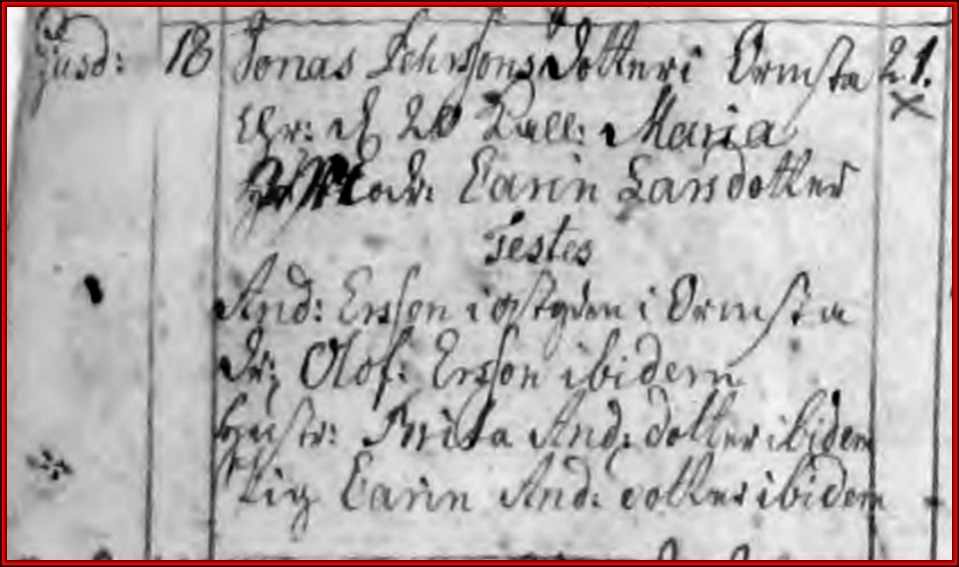 Eusd: 18 Jonas Pehrssons Dotter i Ormsta 21.
Chr: d 20 Kall: Maria
Modr: Carin Larsdotter
Testes
And: Ersson i östgden i Ormsta
Dr: Olof: Ersson ibidem
Hustr: Brita And: dotter ibidem
Pig Carin And: dotter ibidem